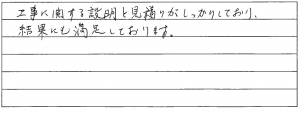 工事に関する説明と見積りがしっかりしており、
結果にも満足しております。